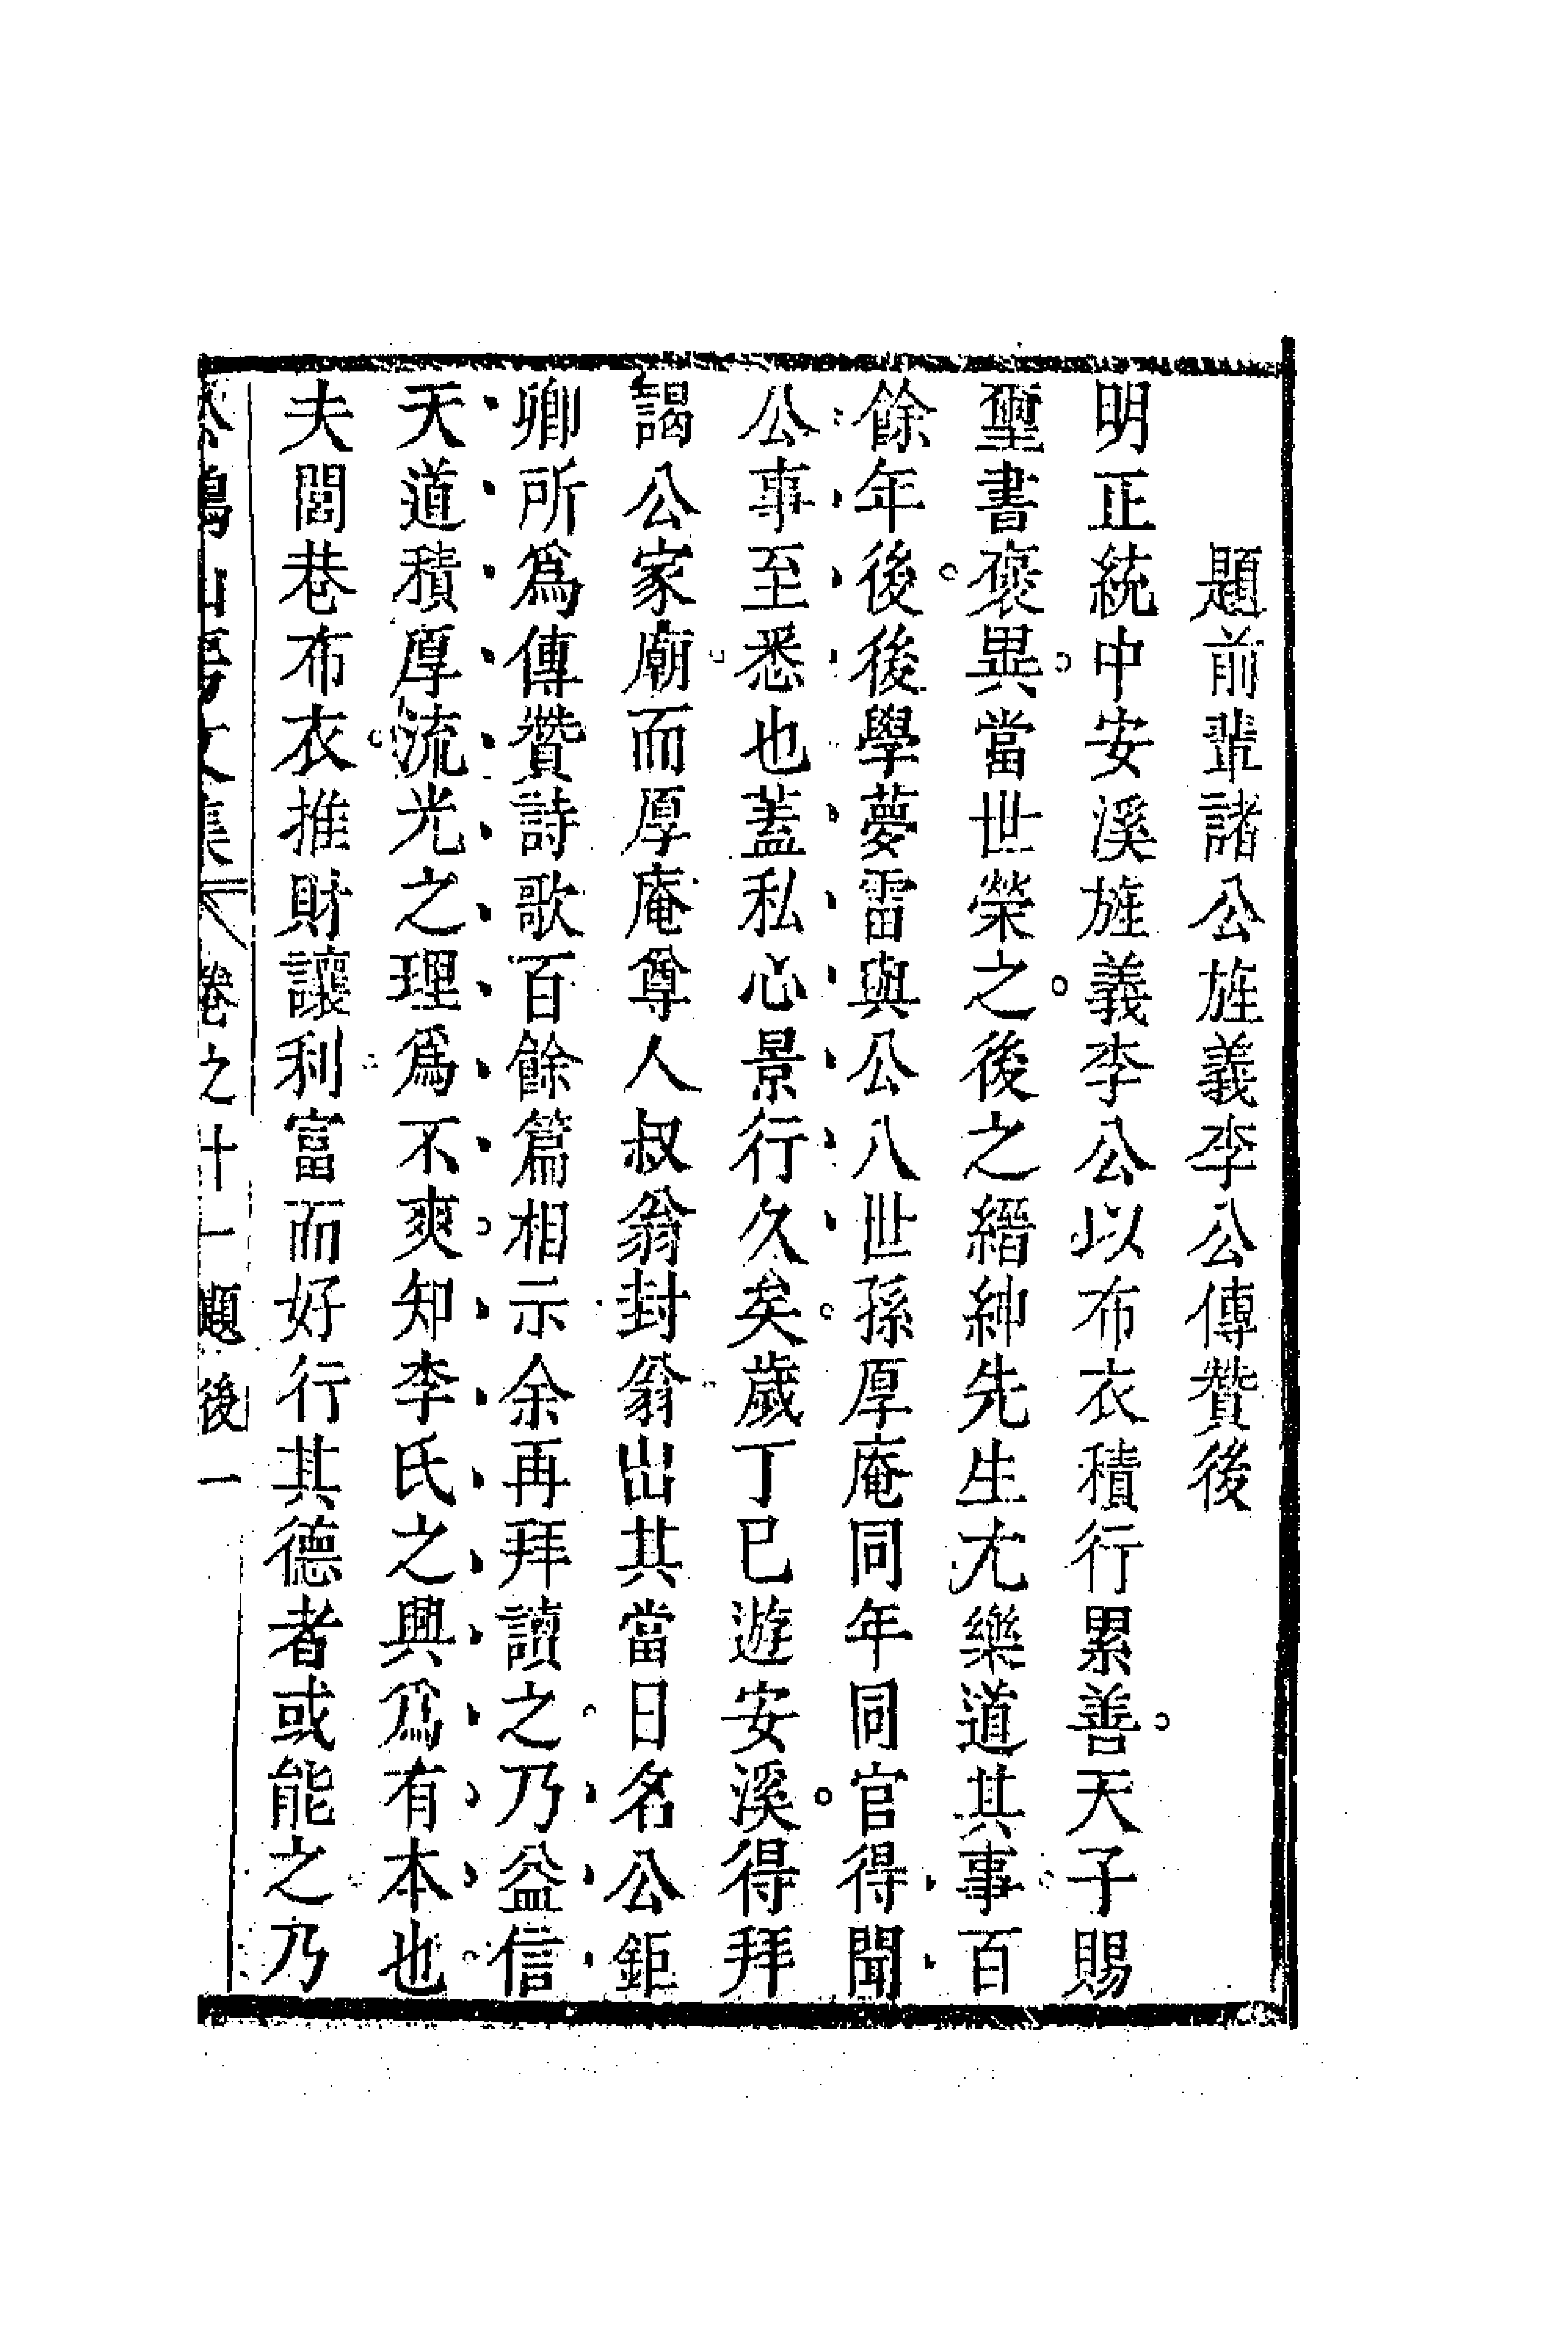 題前輩諸公旌義李公傳贊後
明正統中安溪旌義李公以布衣積行累善。天子賜
璽書褒異。當世榮之。後之縉紳先生尤樂道其事百
餘年後。後學夢雷與公八世孫厚庵同年同官得聞
公事至悉也蓋私心景行久矣。歲丁巳遊安溪。得拜
謁公家廟。而厚庵尊人叔翁封翁出其當日名公鉅
卿所爲傳贊詩歌百餘篇相示余再拜讀之。乃益信
天道積厚流光之理爲不爽。知李氏之興爲有本也。
夫閭巷布衣。推財讓利富而好行其德者或能之乃
松鶴山房文集 卷之十一題後 一